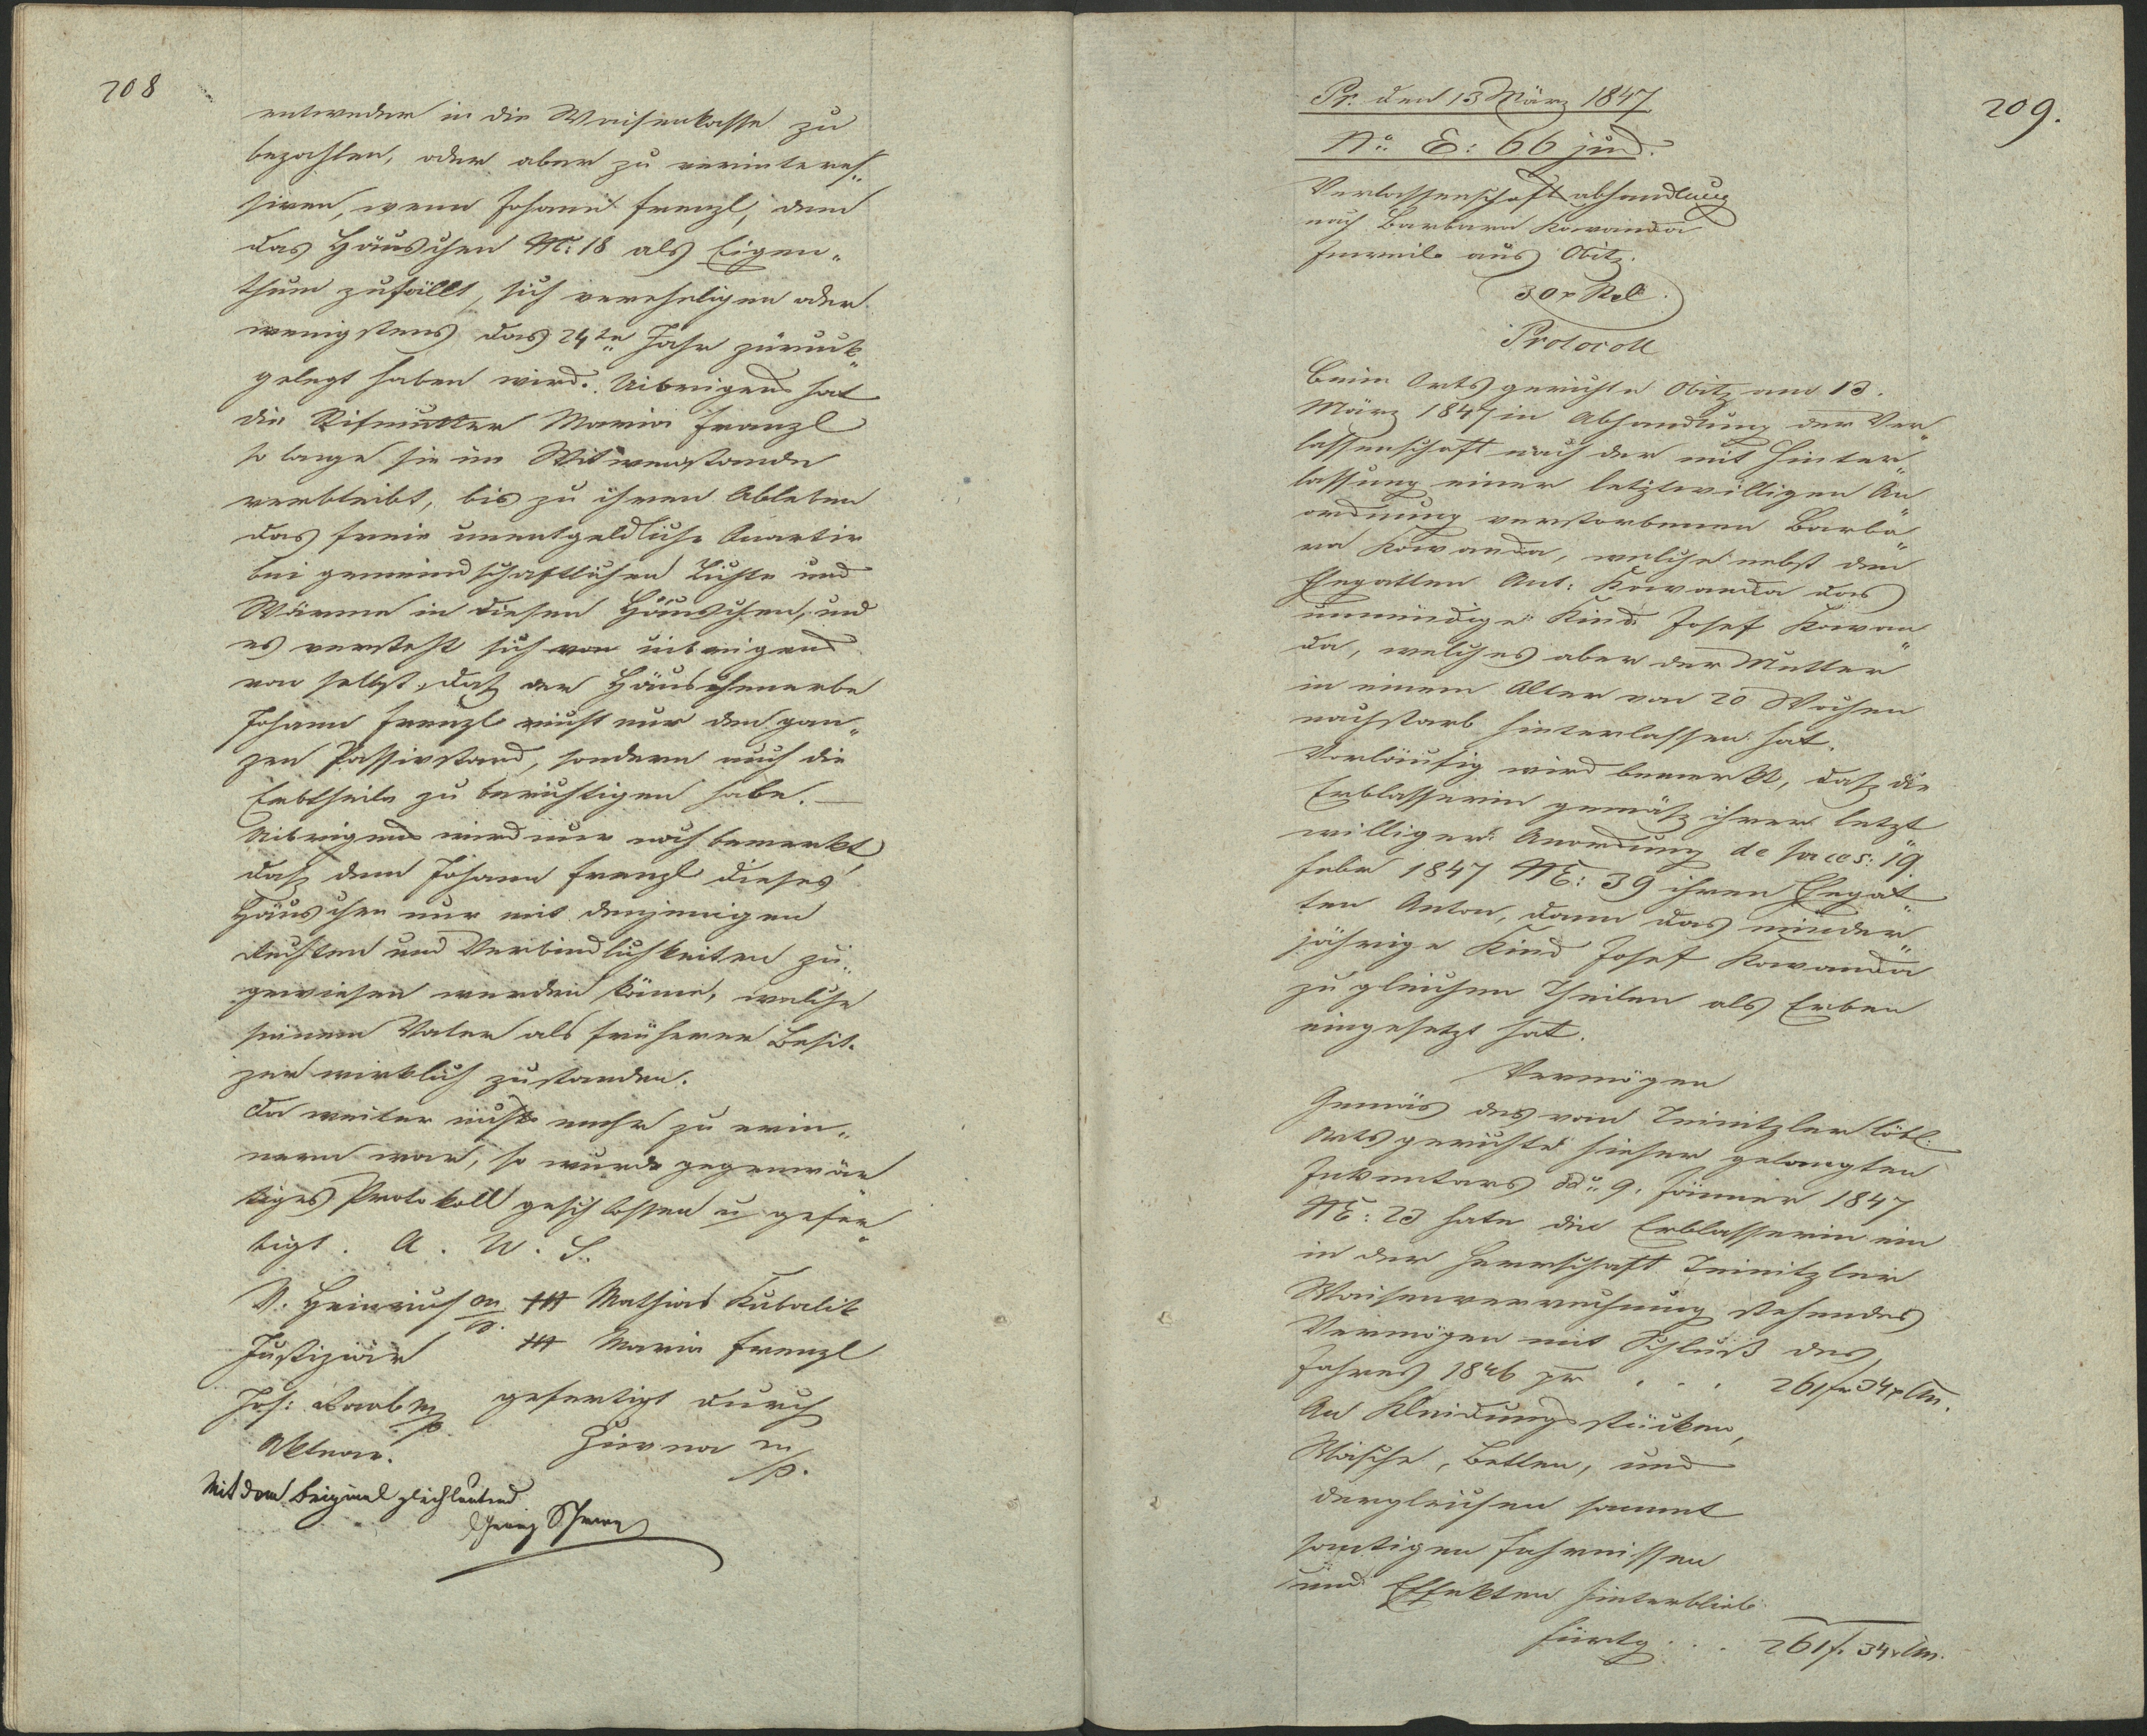 208
entweder in die Waisenkasse zu
bezahlen, oder aber zu verinteres„
siren, wenn Johann Frenzl, dem
das Häuschen N: 18 als Eigen„
thum zufällt, sich verehelichen oder
wenigstens das 24te Jahr zurück„
gelegt haben wird. Uibrigens hat
die Maria Frenzl
so lange sie im Witwenstande
verbleibt, bis zu ihren Ableben
das freie unentgeldliche Quartir
bei gemeindschaftlichen Lichte und
Wärme in diesen Häuschen, und
es versteht sich von uibrigens
von selbst, daß der Häuschenerbe
Johann Frenzl nicht nur den gan„
zen Passivstand, sondern auch die
Erbtheile zu berichtigen habe. —
Uibrigens wird nur noch bemerkt,
daß dem Johann Frenzl dieses
Häuschen nur mit denjenigen
Rechten und Verbindlichkeiten zu„
gewiesen werden könne, welche
seinem Vater als früherer Besit„
zer wirklich zustanden.
Da weiter nichts mehr zu erin„
nern war, so wurde gegenwär„
tiges Protokoll geschlossen u gefer„
tigt. A. U. S.
V. Heinrich m/p. +++ Mathias Kubalik
Justiziär +++ Maria Frenzl
Jos: m/p gefertigt durch
Aktuar. m/p.
Mit dem Original gleichlautend
209.
Pr. den 13 März 1847
No E: 66 jud.
Verlassenschaftabhandlung
nach Barbara Kowanda
Inweib aus Obitz.
30 x
Protocoll
Beim Ortsgerichte Obitz am 13.
März 1847 in Abhandlung der Ver„
lassenschaft nach der mit Hinter„
lassung einer letztwilligen An„
ordnung verstorbenen Barba„
ra Kowanda, welche nebst den
Ehegatten Ant: Kowanda das
unmündige Kind Josef Kowan„
da, welches aber der Mutter
in einem Alter von 20 Wochen
nachstarb hinterlassen hat.
Vorläufig wird bemerkt, daß die
Erblasserin gemäß ihrer letzt„
williger Anordnung de praes: 19.
Febr 1847 NE: 39 ihren Ehegat„
ten Anton, dann das minder„
jährige Kind Josef Kowanda
zu gleichen Theilen als Erben
eingesetzt hat.
Vermögen
Gemäs des vom Teinitzler löbl:
Ortsgerichte hieher gelangten
Inventars ddo 9. Jänner 1847
NE: 23 hatte die Erblasserin ein
in der Herrschaft Teinitzler
Waisenverrechnung stehendes
Vermögen mit Schluß des
Jahres 1846 pr . . . 261 f 34 x Cm.
An Kleidungsstücken,
Wäsche, Betten, und
dergleichen sammt
sonstigen Fahrnissen
und Effekten hinterblieb
Fürtg . . . 261 f. 34 x Cm.